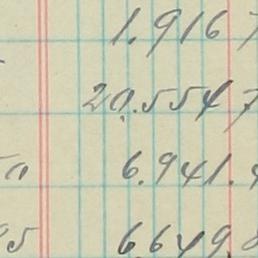 1.916 7
20.554 7
6.941.
6.649.